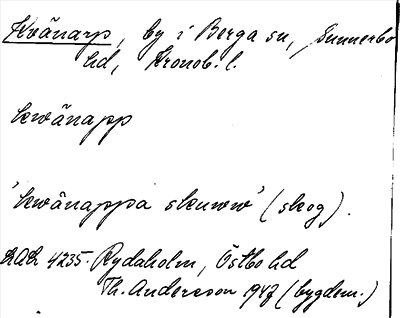 Kvänarp, by i Berga sn, Sunnerbo
hd, Kronob. l.
kwänapp
'kwänappa skuww' (skog).
4235. Rydaholm, Östbo hd
Th. Andersson 1947 (bygdem.)